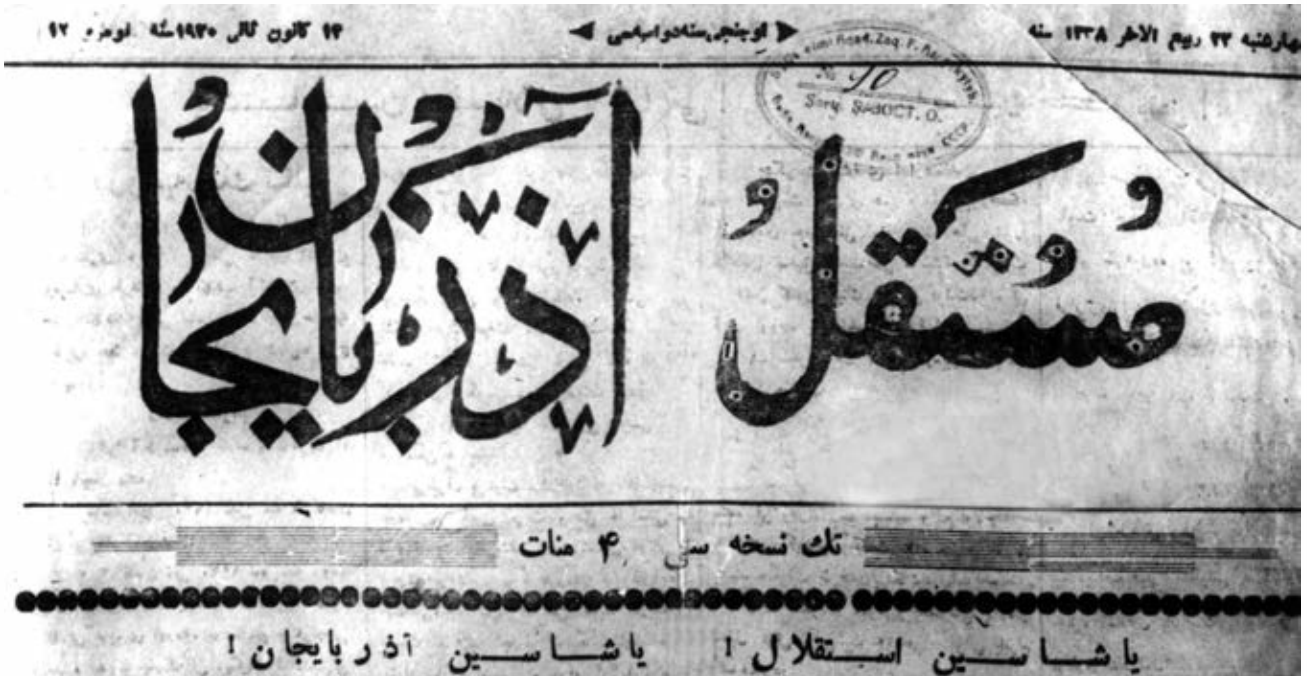 چهارشنبه ۲۲ ربیع الاخر ۱۳۳۸ سنه
اوچنجی سنه دوامیەسی
۱۴ کانون ثانی ۱۹۲۰ سنه نومرو ۹۲
مُستقلُ آذربایجان
تك نسخه سی ۴ منات
یاشاسین استقلال! یاشاسین آذربایجان!